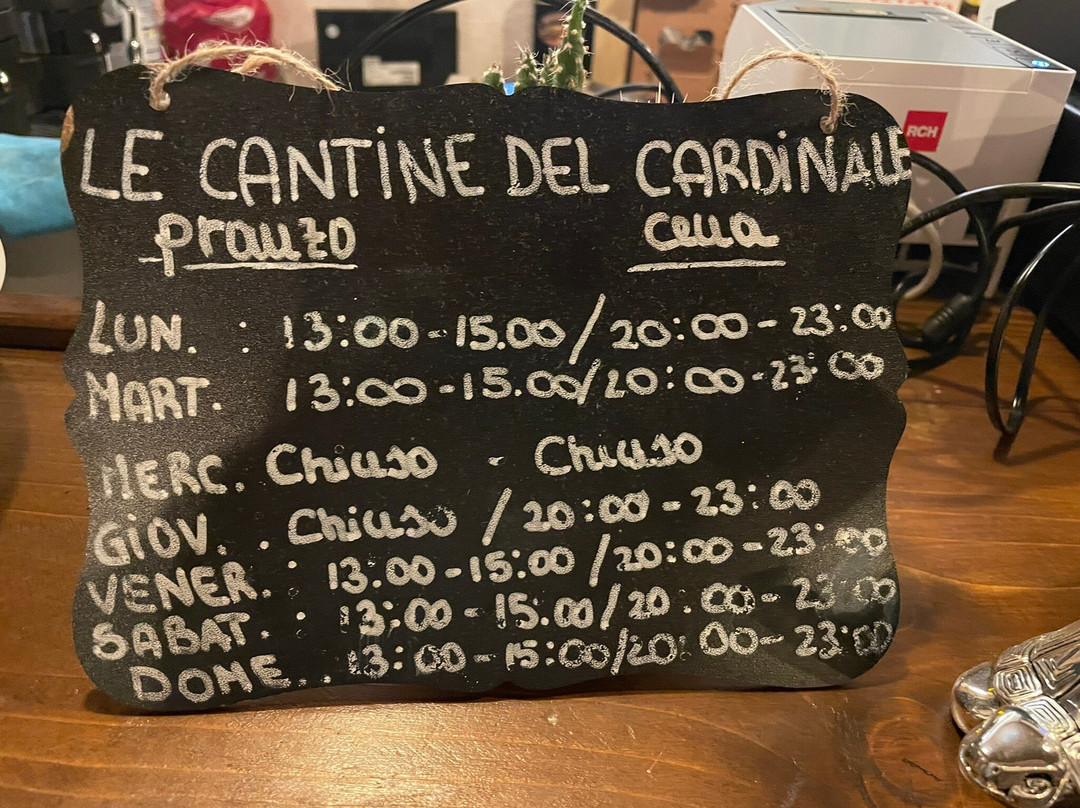 LE CANTINE DEL CARDINALE
pranzo cena
LUN. : 13:00-15.00/20:00-23:00
MART. 13:00-15.00/20:00-23:00
MERC. Chiuso - Chiuso
GIOV. : Chiuso / 20:00-23:00
VENER. : 13.00-15:00/20:00-23:00
SABAT. : 13:00-15.00/20:00-23:00
DOME. . 13:00-15:00/20:00-23:00
RCH